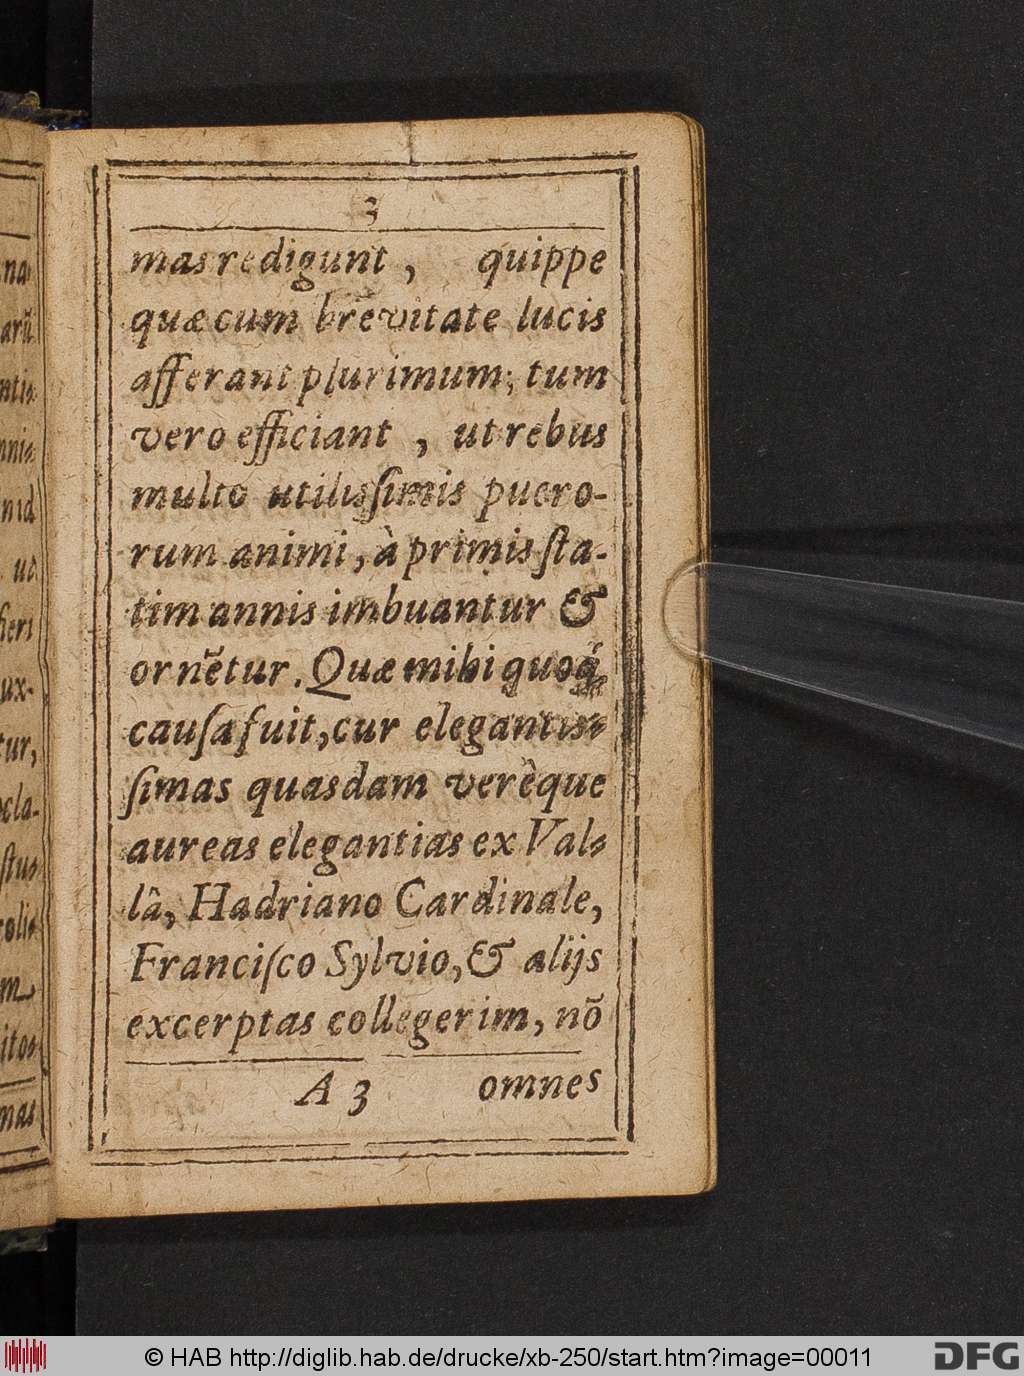 3
mas redigunt, quippe
quæ cum brevitate lucis
afferant plurimum; tum
vero efficiant, ut rebus
multo utilisſimis puero-
rum animi, à primis ſta-
tim annis imbuantur &
ornẽtur. Quæ mihi quoq́
cauſa fuit, cur elegantis-
ſimas quasdam verèque
aureas elegantias ex Val-
lâ, Hadriano Cardinale,
Franciſco Sylvio, & alijs
excerptas collegerim, nõ
A 3 omnes
© HAB http://diglib.hab.de/drucke/xb-250/start.htm?image=00011
DFG